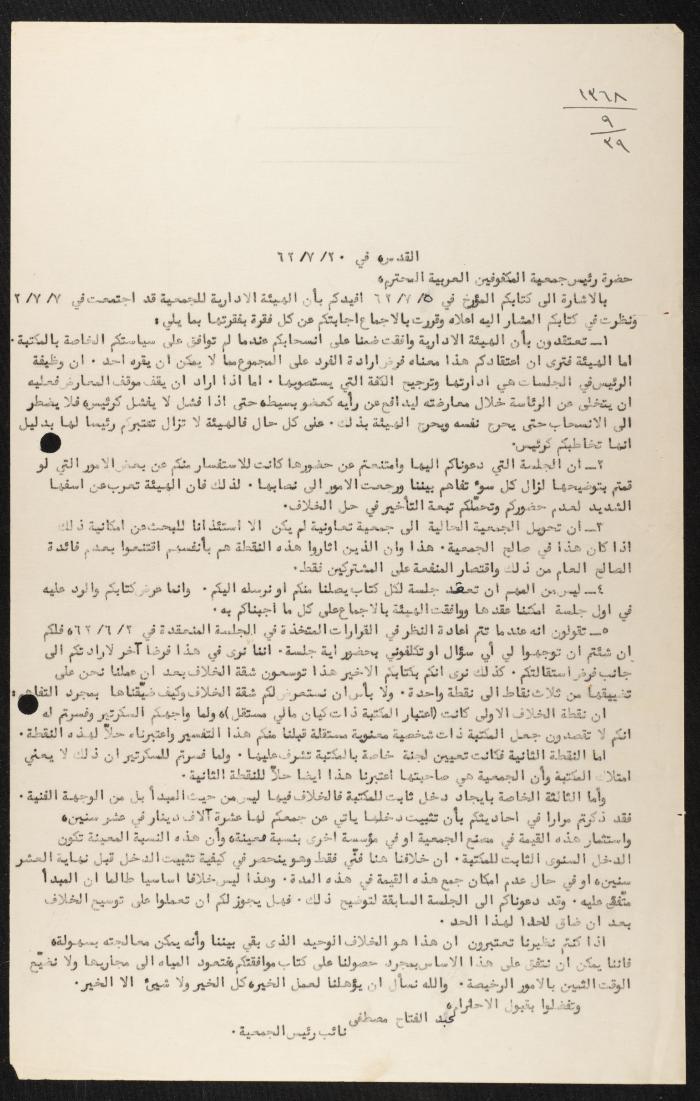 ١٣٦٨
٩
٢٩
القدس، في ٢٠/٧/٦٢
حضرة رئيس جمعية المكفوفين العربية المحترم،
بالاشارة الى كتابكم المؤرخ في ٥/٧/٦٢ افيدكم بأن الهيئة الادارية للجمعية قد اجتمعت في ٧/٧/٦٢
ونظرت في كتابكم المشار اليه اعلاه وقررت بالاجماع اجابتكم عن كل فقرة بفقرتها بما يلي:
١ــ تعتقدون بأن الهيئة الادارية وافقت ضمنا على انسحابكم عندما لم توافق على سياستكم الخاصة بالمكتبة.
اما الهيئة فترى ان اعتقادكم هذا معناه فرض ارادة الفرد على المجموع مما لا يمكن ان يقره احد. ان وظيفة
الرئيس في الجلسات هي ادارتها وترجيح الكفة التي يستصوبها. اما اذا اراد ان يقف موقف المعارض فعليه
ان يتخلى عن الرئاسة خلال معارضته ليدافع عن رأيه كعضو بسيط، حتى اذا فشل لا يفشل كرئيس، فلا يضطر
الى الانسحاب حتى يحرج نفسه ويحرج الهيئة بذلك. على كل حال فالهيئة لا تزال تعتبركم رئيسا لها بدليل
انها تخاطبكم كرئيس.
٢ــ ان الجلسة التي دعوناكم اليها وامتنعتم عن حضورها كانت للاستفسار منكم عن بعض الامور التي لو
قمتم بتوضيحها لزال كل سوء تفاهم بيننا ورجعت الامور الى نصابها. لذلك فان الهيئة تعرب عن اسفها
الشديد لعدم حضوركم وتحملكم تبعة التأخير في حل الخلاف.
٣ــ ان تحويل الجمعية الحالية الى جمعية تعاونية لم يكن الا استئذانا للبحث عن امكانية ذلك
اذا كان هذا في صالح الجمعية. هذا وان الذين اثاروا هذه النقطة هم بأنفسهم اقتنعوا بعدم فائدة
الصالح العام من ذلك واقتصار المنفعة على المشتركين فقط.
٤ــ ليس من المهم ان تعقد جلسة لكل كتاب يصلنا منكم او نرسله اليكم. وانما عرض كتابكم والرد عليه
في اول جلسة امكننا عقدها ووافقت الهيئة بالاجماع على كل ما اجبناكم به.
٥ــ تقولون انه عندما تتم اعادة النظر في القرارات المتخذة في الجلسة المنعقدة في ٢/٦/٦٢، فلكم
ان شئتم ان توجهوا لي أي سؤال او تكلفوني بحضور اية جلسة. اننا نرى في هذا فرضا آخر لارادتكم الى
جانب فرض استقالتكم. كذلك نرى انكم بكتابكم الاخير هذا توسعون شقة الخلاف بعد ان عملنا نحن على
تضييقها من ثلاث نقاط الى نقطة واحدة. ولا بأس ان نستعرض لكم شقة الخلاف وكيف ضيّقناها بمجرد التفاهم:
ان نقطة الخلاف الاولى كانت (اعتبار المكتبة ذات كيان مالي مستقل)، ولما واجهكم السكرتير وفسرتم له
انكم لا تقصدون جعل المكتبة ذات شخصية معنوية مستقلة قبلنا منكم هذا التفسير واعتبرناه حلاّ لهذه النقطة.
اما النقطة الثانية فكانت تعيين لجنة خاصة بالمكتبة تشرف عليها. ولما فسرتم للسكرتير ان ذلك لا يعني
امتلاك المكتبة وأن الجمعية هي صاحبتها اعتبرنا هذا ايضا حلاّ للنقطة الثانية.
وأما الثالثة الخاصة بايجاد دخل ثابت للمكتبة فالخلاف فيها ليس من حيث المبدأ بل من الوجهة الفنية.
فقد ذكرتم مرارا في احاديثكم بأن تثبيت دخلها ياتي عن جمعكم لها عشرة آلاف دينار في عشر سنين،
واستثمار هذه القيمة في مصنع الجمعية او في مؤسسة اخرى بنسبة معينة، وأن هذه النسبة المعينة تكون
الدخل السنوى الثابت للمكتبة. ان خلافنا هنا فنّي فقط وهو ينحصر في كيفية تثبيت الدخل قبل نهاية العشر
سنين، او في حال عدم امكان جمع هذه القيمة في هذه المدة. وهذا ليس خلافا اساسيا طالما ان المبدأ
متّفق عليه. وقد دعوناكم الى الجلسة السابقة لتوضيح ذلك. فهل يجوز لكم ان تعملوا على توسيع الخلاف
بعد ان ضاق لهذا الحد.
اذا كنتم نظيرنا تعتبرون ان هذا هو الخلاف الوحيد الذى بقي بيننا وأنه يمكن معالجته بسهولة،
فاننا يمكن ان نتفق على هذا الاساس بمجرد حصولنا على كتاب موافقتكم، فتعود المياه الى مجاريها ولا نضيّع
الوقت الثمين بالامور الرخيصة. والله نسأل ان يؤهلنا لعمل الخير، كل الخير ولا شيئ الا الخير.
وتفضلوا بقبول الاحترام،
عبد الفتاح مصطفى
نائب رئيس الجمعية.